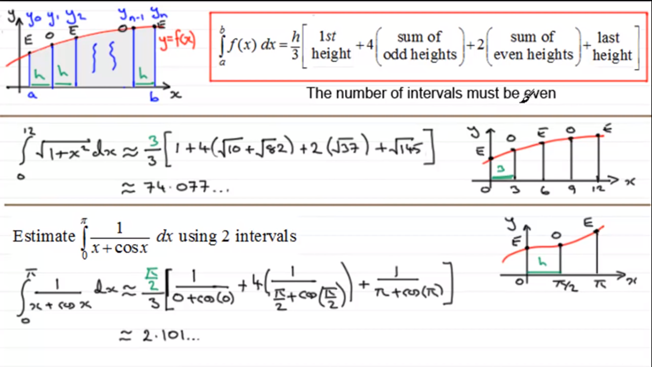 y y₀ y₁ y₂ yₙ₋₁ yₙ
E O E O E
y=f(x)
h h h
a b x
∫ₐᵇ f(x) dx = h/3 [ 1st height + 4( sum of odd heights ) + 2( sum of even heights ) + last height ]
The number of intervals must be even
∫₀¹² √(1+x²) dx ≈ 3/3 [ 1 + 4(√10 + √82) + 2(√37) + √145 ]
≈ 74.077...
y E O E O E
3
0 3 6 9 12 x
Estimate ∫₀^π 1/(x+cosx) dx using 2 intervals
∫₀^π 1/(x+cosx) dx ≈ (π/2)/3 [ 1/(0+cos(0)) + 4( 1/(π/2+cos(π/2)) ) + 1/(π+cos(π)) ]
≈ 2.101...
y E O E
h
0 π/2 π x